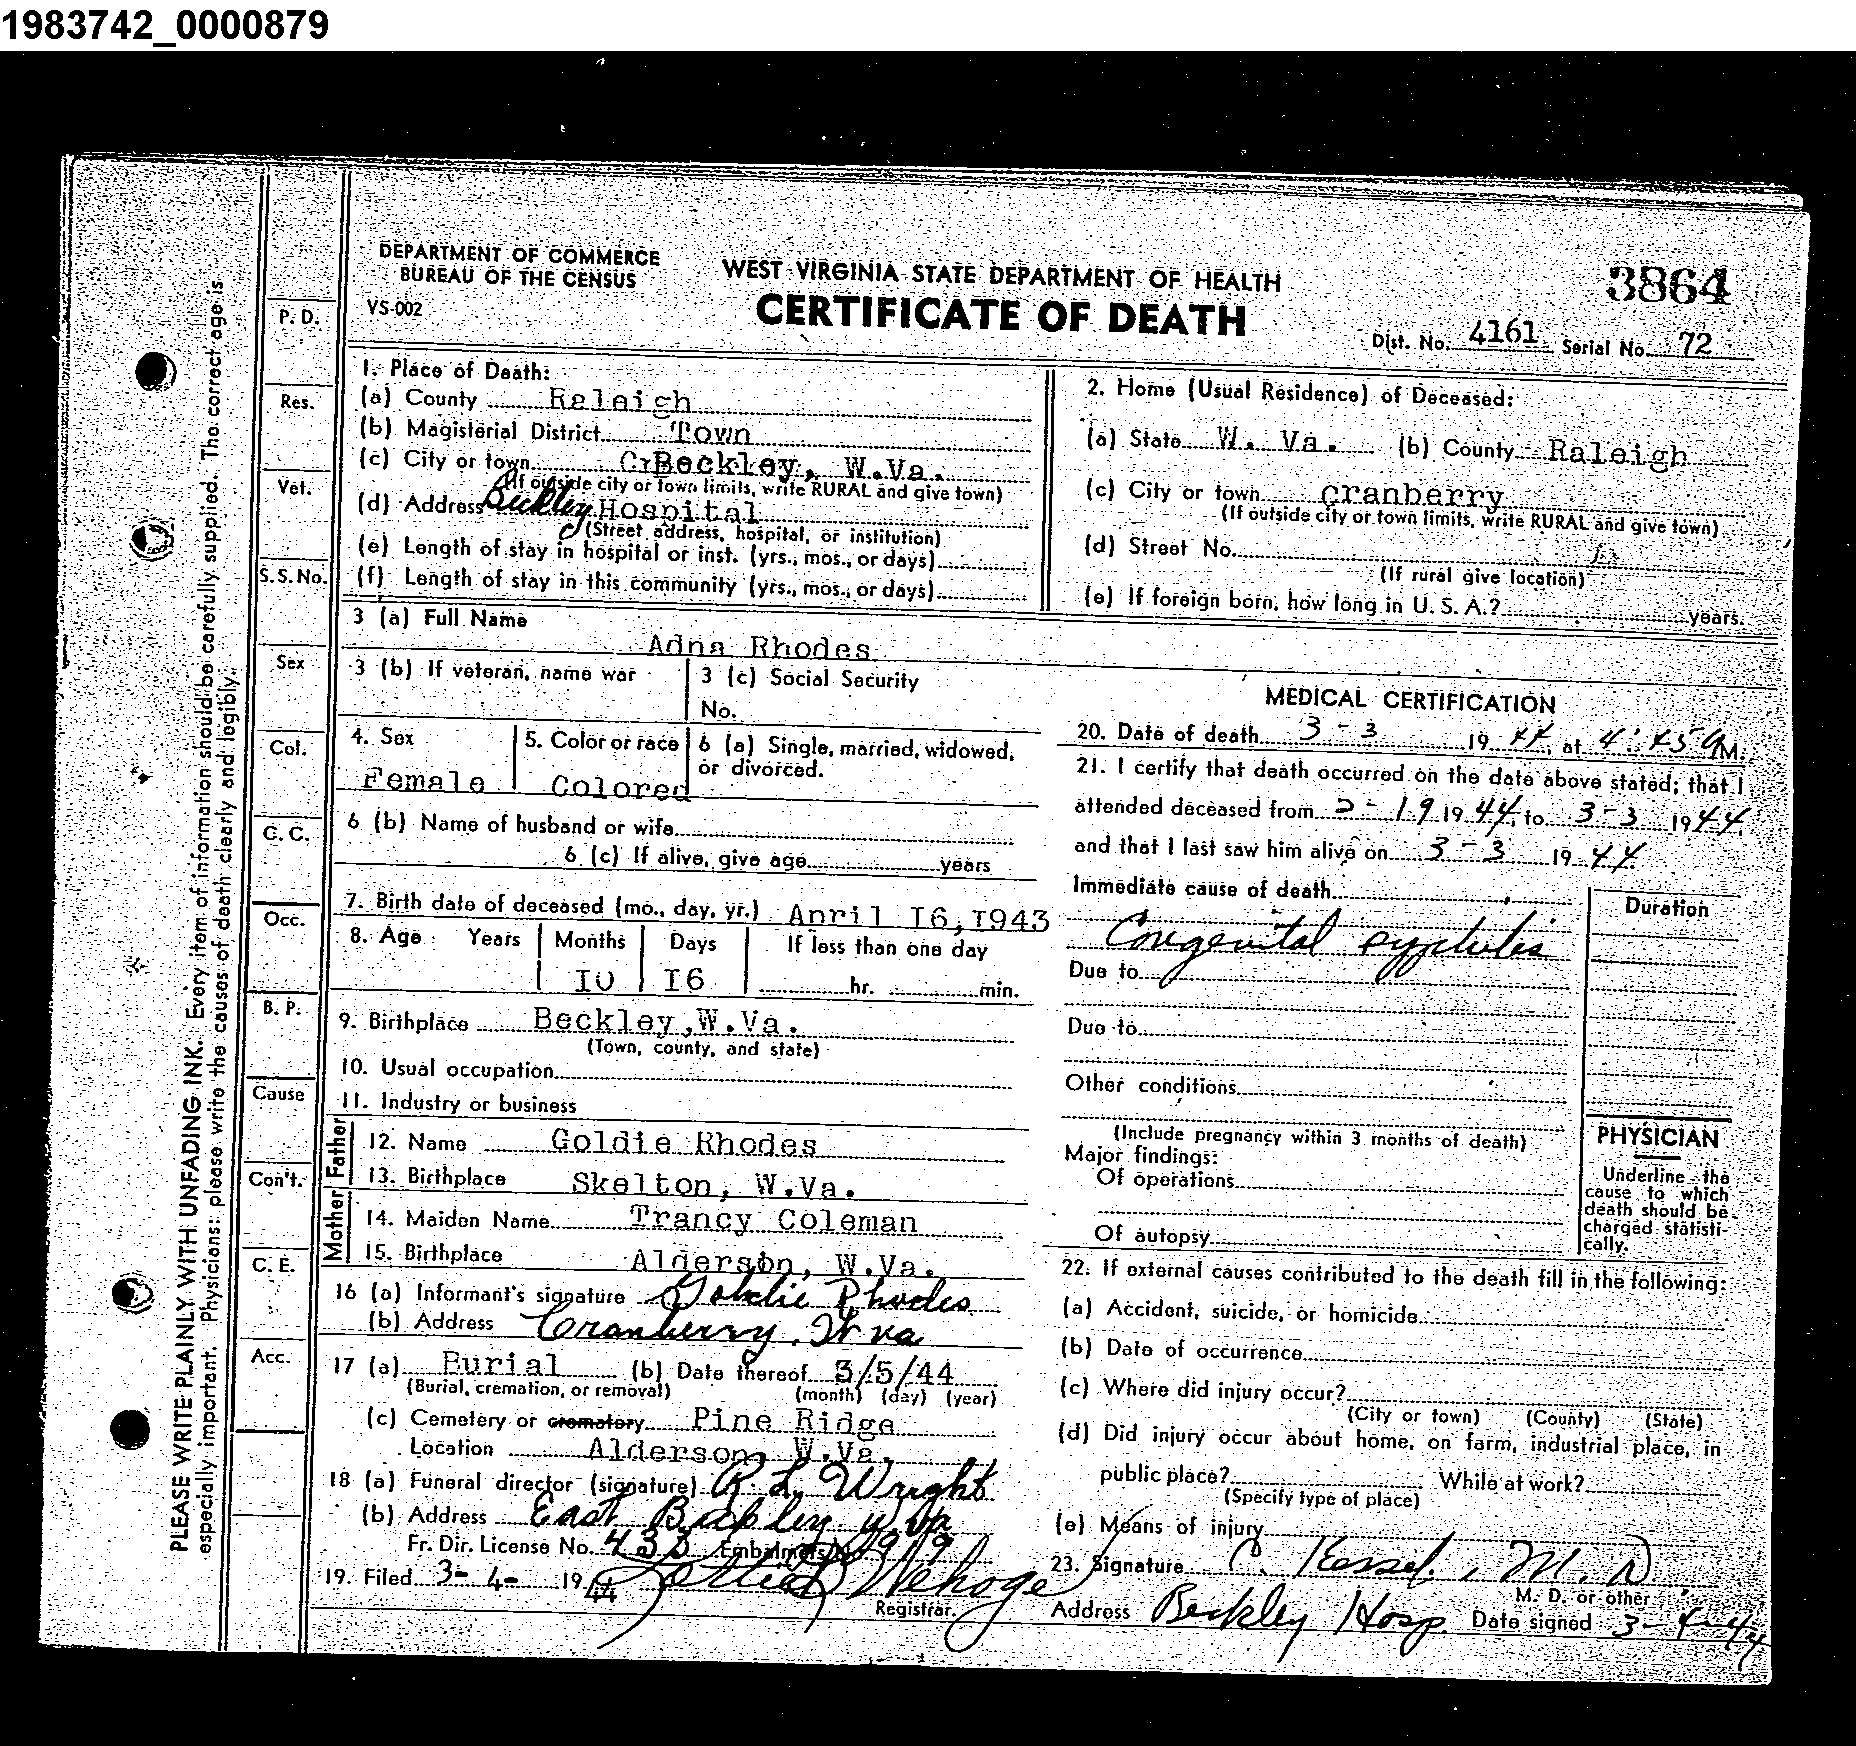 1983742_0000879
DEPARTMENT OF COMMERCE
BUREAU OF THE CENSUS
VS-002
WEST VIRGINIA STATE DEPARTMENT OF HEALTH
CERTIFICATE OF DEATH
3864
Dist. No. 4161 Serial No. 72
PLEASE WRITE PLAINLY WITH UNFADING INK. Every item of information should be carefully supplied. The correct age is
especially important. Physicians: please write the causes of death clearly and legibly.
P. D.
Res.
Vet.
S.S. No.
Sex
Col.
C. C.
Occ.
B. P.
Cause
Con't.
C. E.
Acc.
1. Place of Death:
(a) County Raleigh
(b) Magisterial District Town
(c) City or town Beckley, W.Va.
(If outside city or town limits, write RURAL and give town)
(d) Address Beckley Hospital
(Street address, hospital, or institution)
(e) Length of stay in hospital or inst. (yrs., mos., or days)
(f) Length of stay in this community (yrs., mos., or days)
2. Home (Usual Residence) of Deceased:
(a) State W. Va. (b) County Raleigh
(c) City or town Cranberry
(If outside city or town limits, write RURAL and give town)
(d) Street No.
(If rural give location)
(e) If foreign born, how long in U. S. A.? years.
3 (a) Full Name
Adna Rhodes
3 (b) If veteran, name war
3 (c) Social Security
No.
4. Sex
Female
5. Color or race
Colored
6 (a) Single, married, widowed,
or divorced.
6 (b) Name of husband or wife
6 (c) If alive, give age years
7. Birth date of deceased (mo., day, yr.) April I6, I943
8. Age Years Months Days If less than one day
I0 I6 hr. min.
9. Birthplace Beckley, W.Va.
(Town, county, and state)
10. Usual occupation
11. Industry or business
Father
12. Name Goldie Rhodes
13. Birthplace Skelton, W.Va.
Mother
14. Maiden Name Trancy Coleman
15. Birthplace Alderson, W.Va.
16 (a) Informant's signature Goldie Rhodes
(b) Address Cranberry, W va
17 (a) Burial (b) Date thereof 3/5/44
(Burial, cremation, or removal) (month) (day) (year)
(c) Cemetery or crematory Pine Ridge
Location Alderson, W.Va.
18 (a) Funeral director (signature) R. L. Wright
(b) Address East Beckley W Va
Fr. Dir. License No. 433 Embalmer's No.
19. Filed 3-4- 1944
Registrar.
MEDICAL CERTIFICATION
20. Date of death 3-3 1944, at 4:45 a M.
21. I certify that death occurred on the date above stated; that I
attended deceased from 2-19 1944, to 3-3 1944
and that I last saw him alive on 3-3 1944
Immediate cause of death
Duration
Congenital syphilis
Due to
Due to
Other conditions
(Include pregnancy within 3 months of death)
Major findings:
Of operations
Of autopsy
PHYSICIAN
Underline the
cause to which
death should be
charged statisti-
cally.
22. If external causes contributed to the death fill in the following:
(a) Accident, suicide, or homicide
(b) Date of occurrence
(c) Where did injury occur?
(City or town) (County) (State)
(d) Did injury occur about home, on farm, industrial place, in
public place? While at work?
(Specify type of place)
(e) Means of injury
23. Signature C. Kessel, M. D.
M. D. or other
Address Beckley Hosp. Date signed 3-4-44